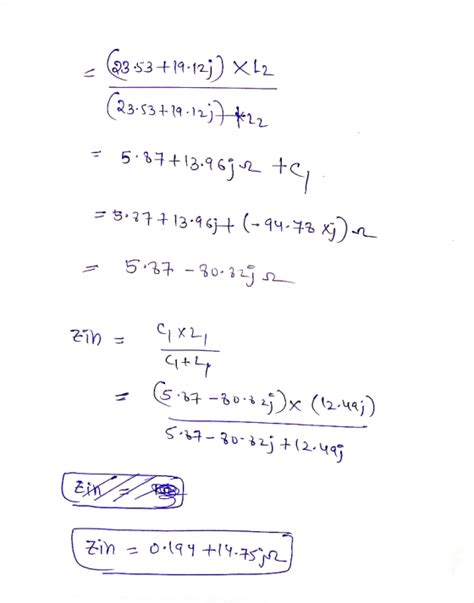 = (23.53+19.12j) × L2
(23.53+19.12j)+L2
= 5.87+13.96j Ω + C1
= 5.87+13.96j+(-94.78 × j) Ω
= 5.87 - 80.82j Ω
Zin = C1 × L1
C1 + L1
= (5.87-80.82j) × (12.49j)
5.87-80.82j+12.49j
Zin =
Zin = 0.194 + 14.75j Ω